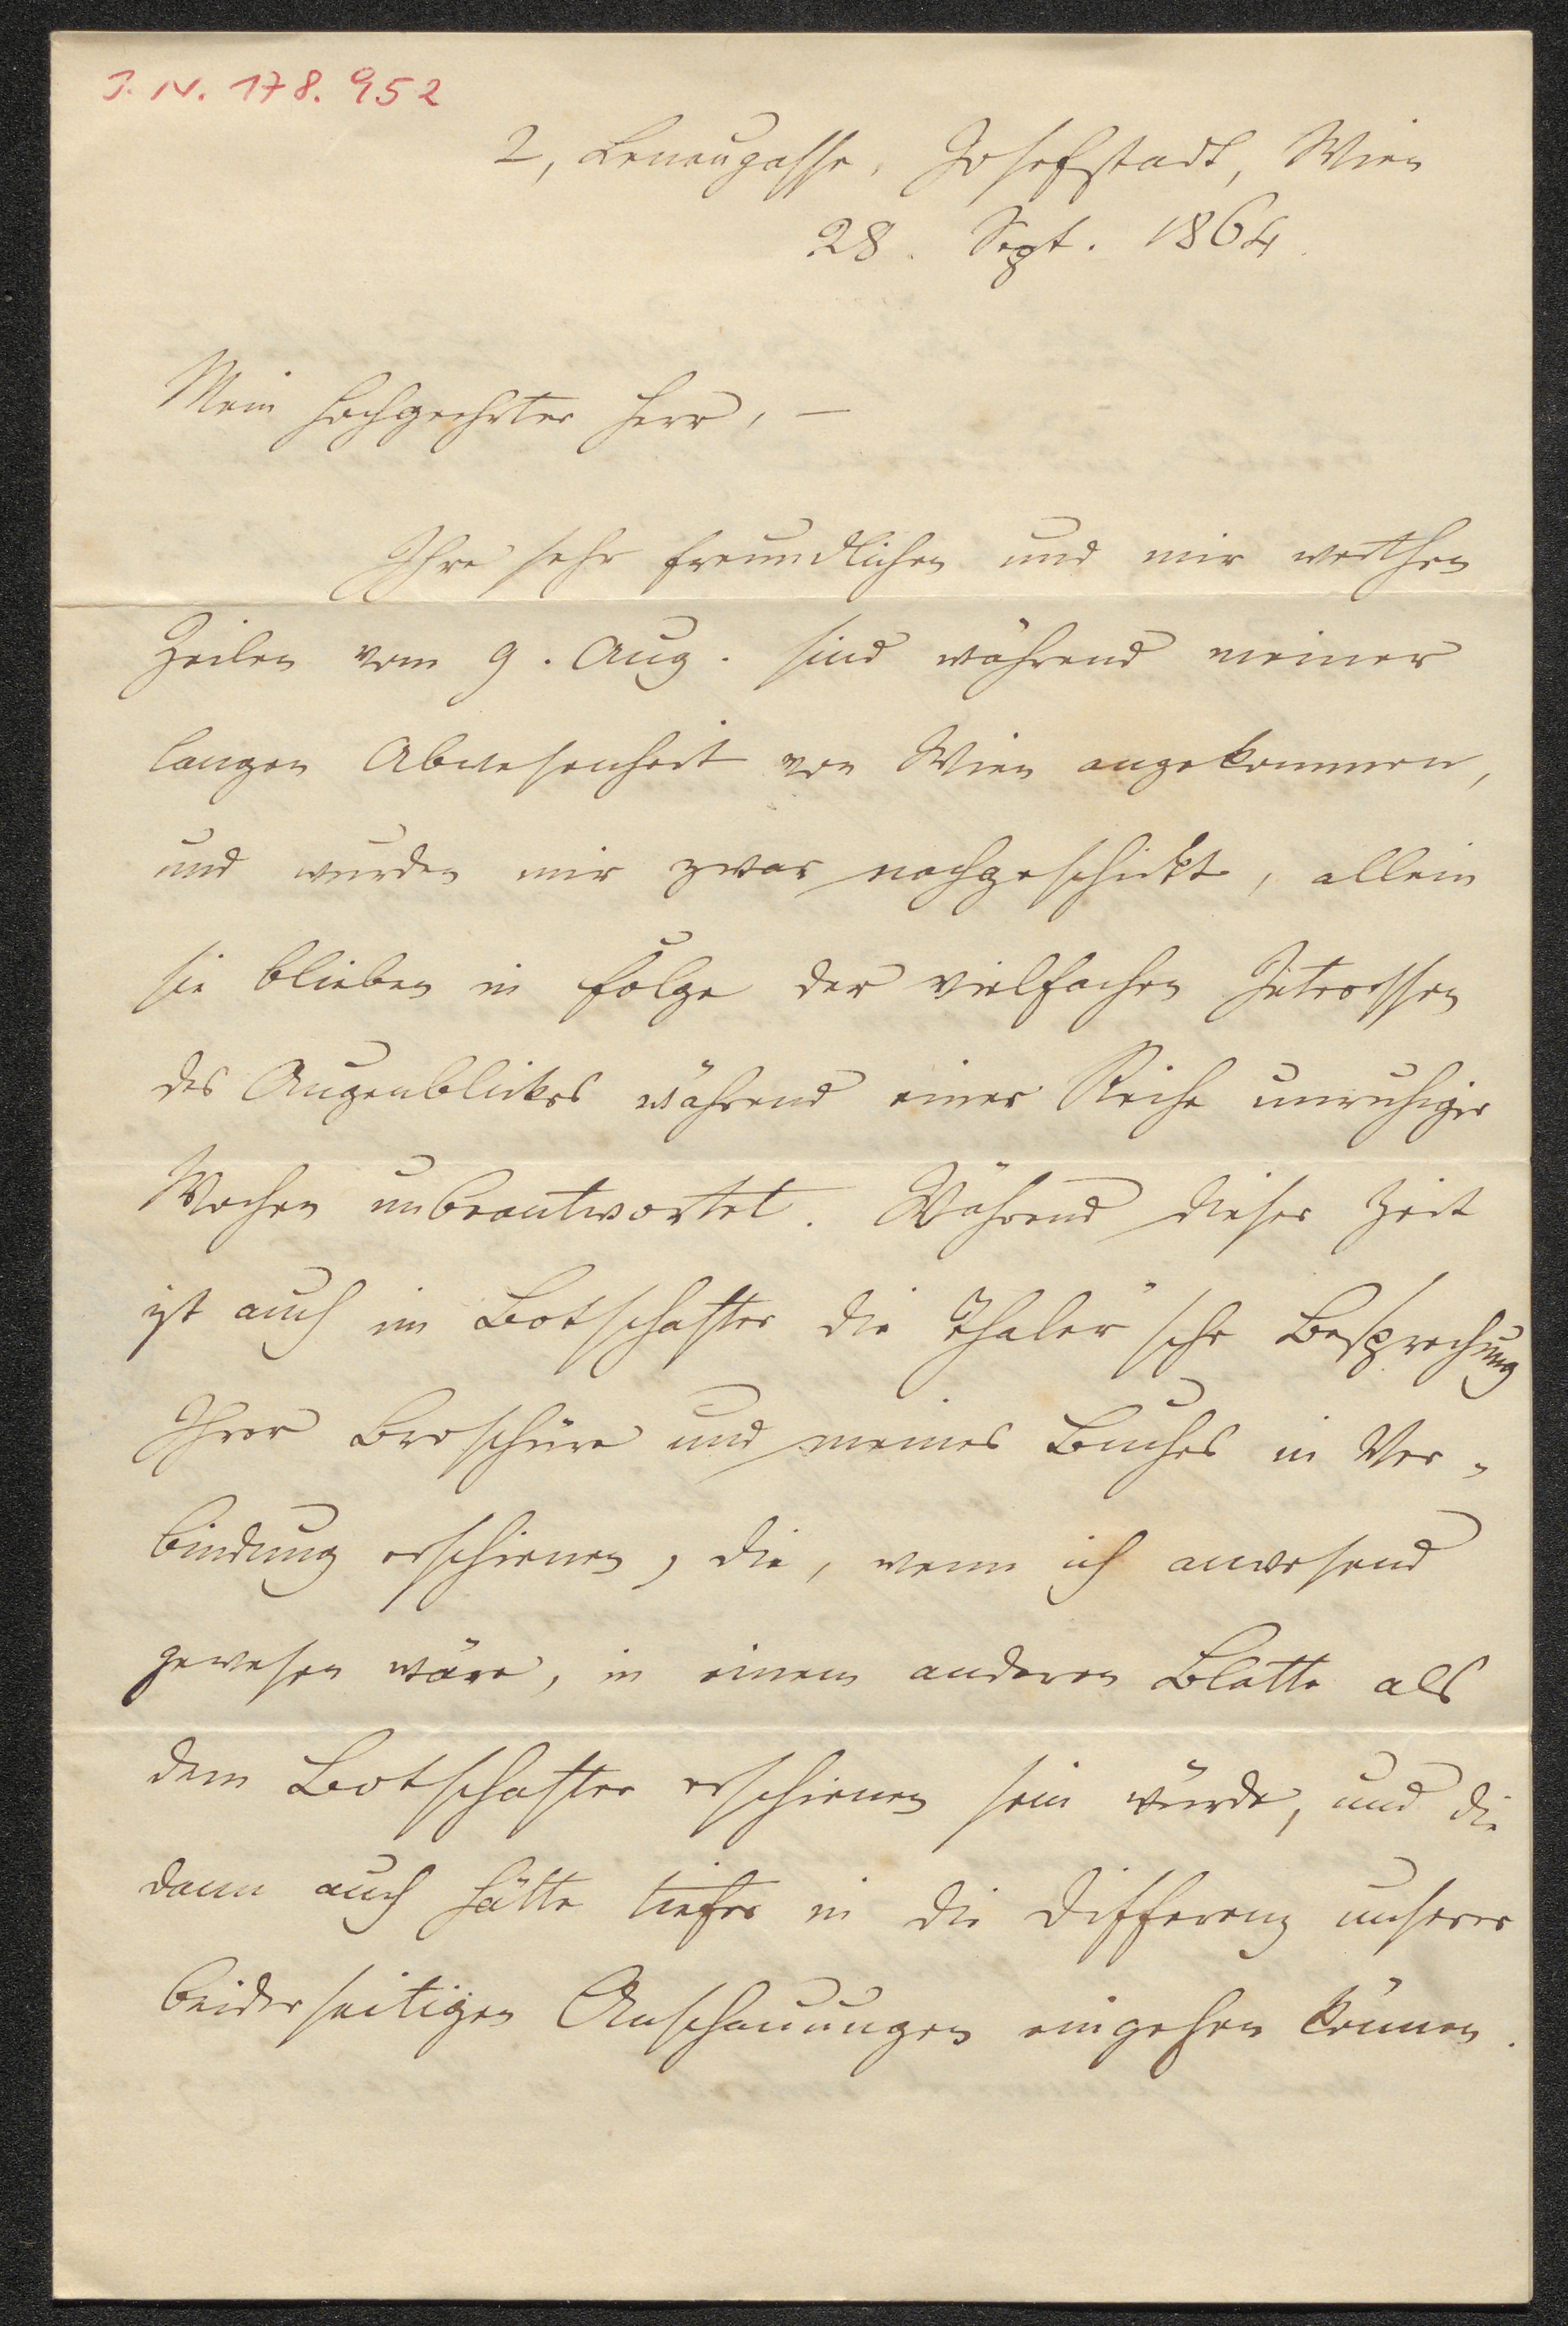 J. N. 178.952
2, Lenaugasse, Josefstadt, Wien
28. Sept. 1864.
Mein hochgeehrter Herr, —
Ihre sehr freundlichen und mir werthen
Zeilen vom 9. Aug. sind während meiner
langen Abwesenheit von Wien angekommen,
und wurden mir zwar nachgeschickt, allein
sie blieben in Folge der vielfachen
des Augenblickes während einer Reihe unruhiger
Wochen unbeantwortet. Während dieser Zeit
ist auch im Botschafter die Thaler'sche Besprechung
Ihrer Broschüre und meines Buches in Ver-
bindung erschienen, die, wenn ich anwesend
gewesen wäre, in einem anderen Blatte als
dem Botschafter erschienen sein würde, und die
dann auch hätte tiefer in die Differenz unserer
beiderseitigen Anschauungen eingehen können.